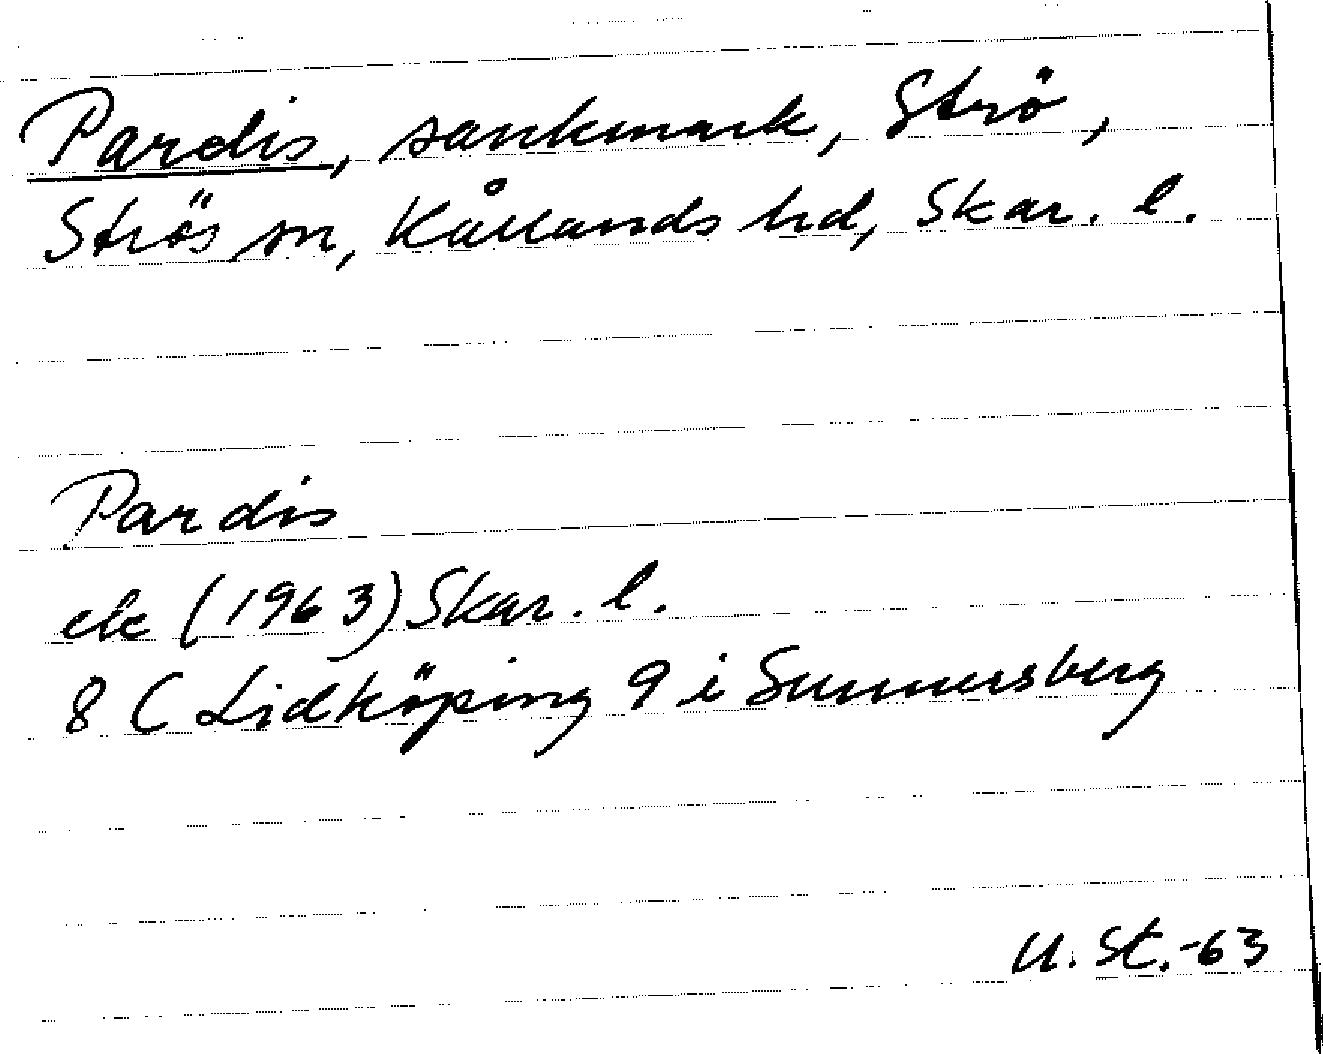 Pardis, sankmark, Strö,
Strös sn, Kållands hd, Skar. l.
Pardis
ek (1963) Skar. l.
8 C Lidköping 9 i Sunnersberg
U. St. -63